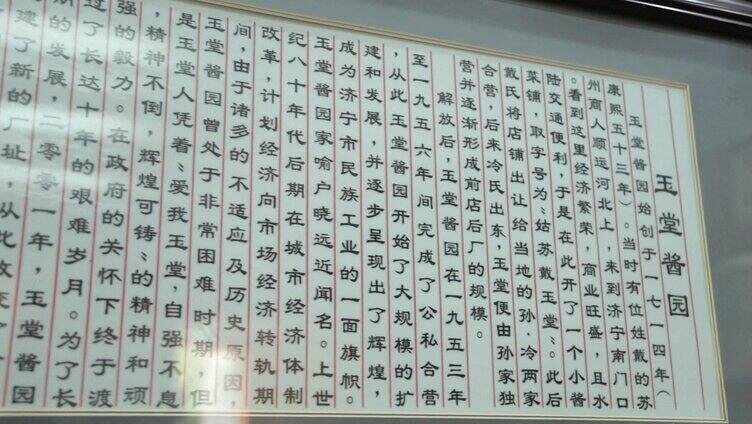 玉堂酱园
玉堂酱园始创于一七一四年(
康熙五十三年)。当时有位姓戴的苏
州商人顺运河北上,来到济宁南门口
。看到这里经济繁荣,商业旺盛,且水
陆交通便利,于是在此开了一个小酱
菜铺,取字号为“姑苏戴玉堂”。此后
戴氏将店铺出让给当地的孙·冷两家
合营,后来冷氏出东,玉堂便由孙家独
营并逐渐形成前店后厂的规模。
解放后,玉堂酱园在一九五三年
至一九五六年间完成了公私合营
,从此玉堂酱园开始了大规模的扩
建和发展,并逐步呈现出了辉煌,
成为济宁市民族工业的一面旗帜。
玉堂酱园家喻户晓远近闻名。上世
纪八十年代后期在城市经济体制
改革,计划经济向市场经济转轨期
间,由于诸多的不适应及历史原因,
玉堂酱园曾处于非常困难时期,但
是玉堂人凭着“爱我玉堂,自强不息
,精神不倒,辉煌可铸”的精神和顽
强的毅力。在政府的关怀下终于渡
过了长达十年的艰难岁月。为了长
期的发展,二零零一年,玉堂酱园
建了新的厂址,从此改